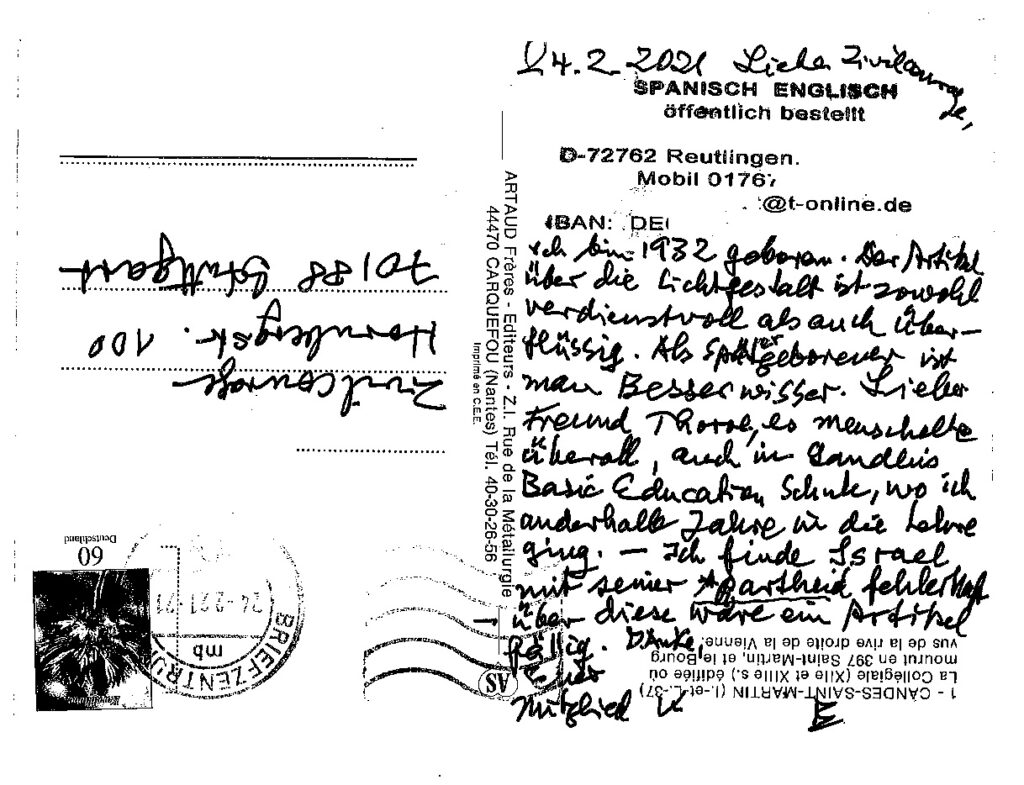 24.2.2021 Liebe Zivilcourage,
SPANISCH ENGLISCH
öffentlich bestellt
D-72762 Reutlingen.
Mobil 0176
@t-online.de
IBAN: DE
Ich bin 1932 geboren. Der Artikel
über die Lichtgestalt ist sowohl
verdienstvoll als auch über-
flüssig. Als Spätergeborener ist
man Besserwisser. Lieber
Freund es menschelte
überall, auch in Gandhis
Basic Education Schule, wo ich
anderhalb Jahre in die Lehre
ging. – Ich finde Israel
mit seiner Apartheid fehlerhaft
→ über diese wäre ein Artikel
fällig. Danke,
Euer
Mitglied K
1 - CANDES-SAINT-MARTIN (I.-et-L.-37)
La Collégiale (XIIe et XIIIe s.), édifiée où
mourut en 397 Saint-Martin, et le Bourg
vus de la rive droite de la Vienne.
ARTAUD Frères - Editeurs - Z.I. Rue de la Métallurgie
44470 CARQUEFOU (Nantes) Tél. 40-30-26-56
Imprimé en C.E.E.
Zivilcourage
Hornbergstr. 100
70188 Stuttgart
60
Deutschland
BRIEFZENTRUM
24-2.21-21
mb